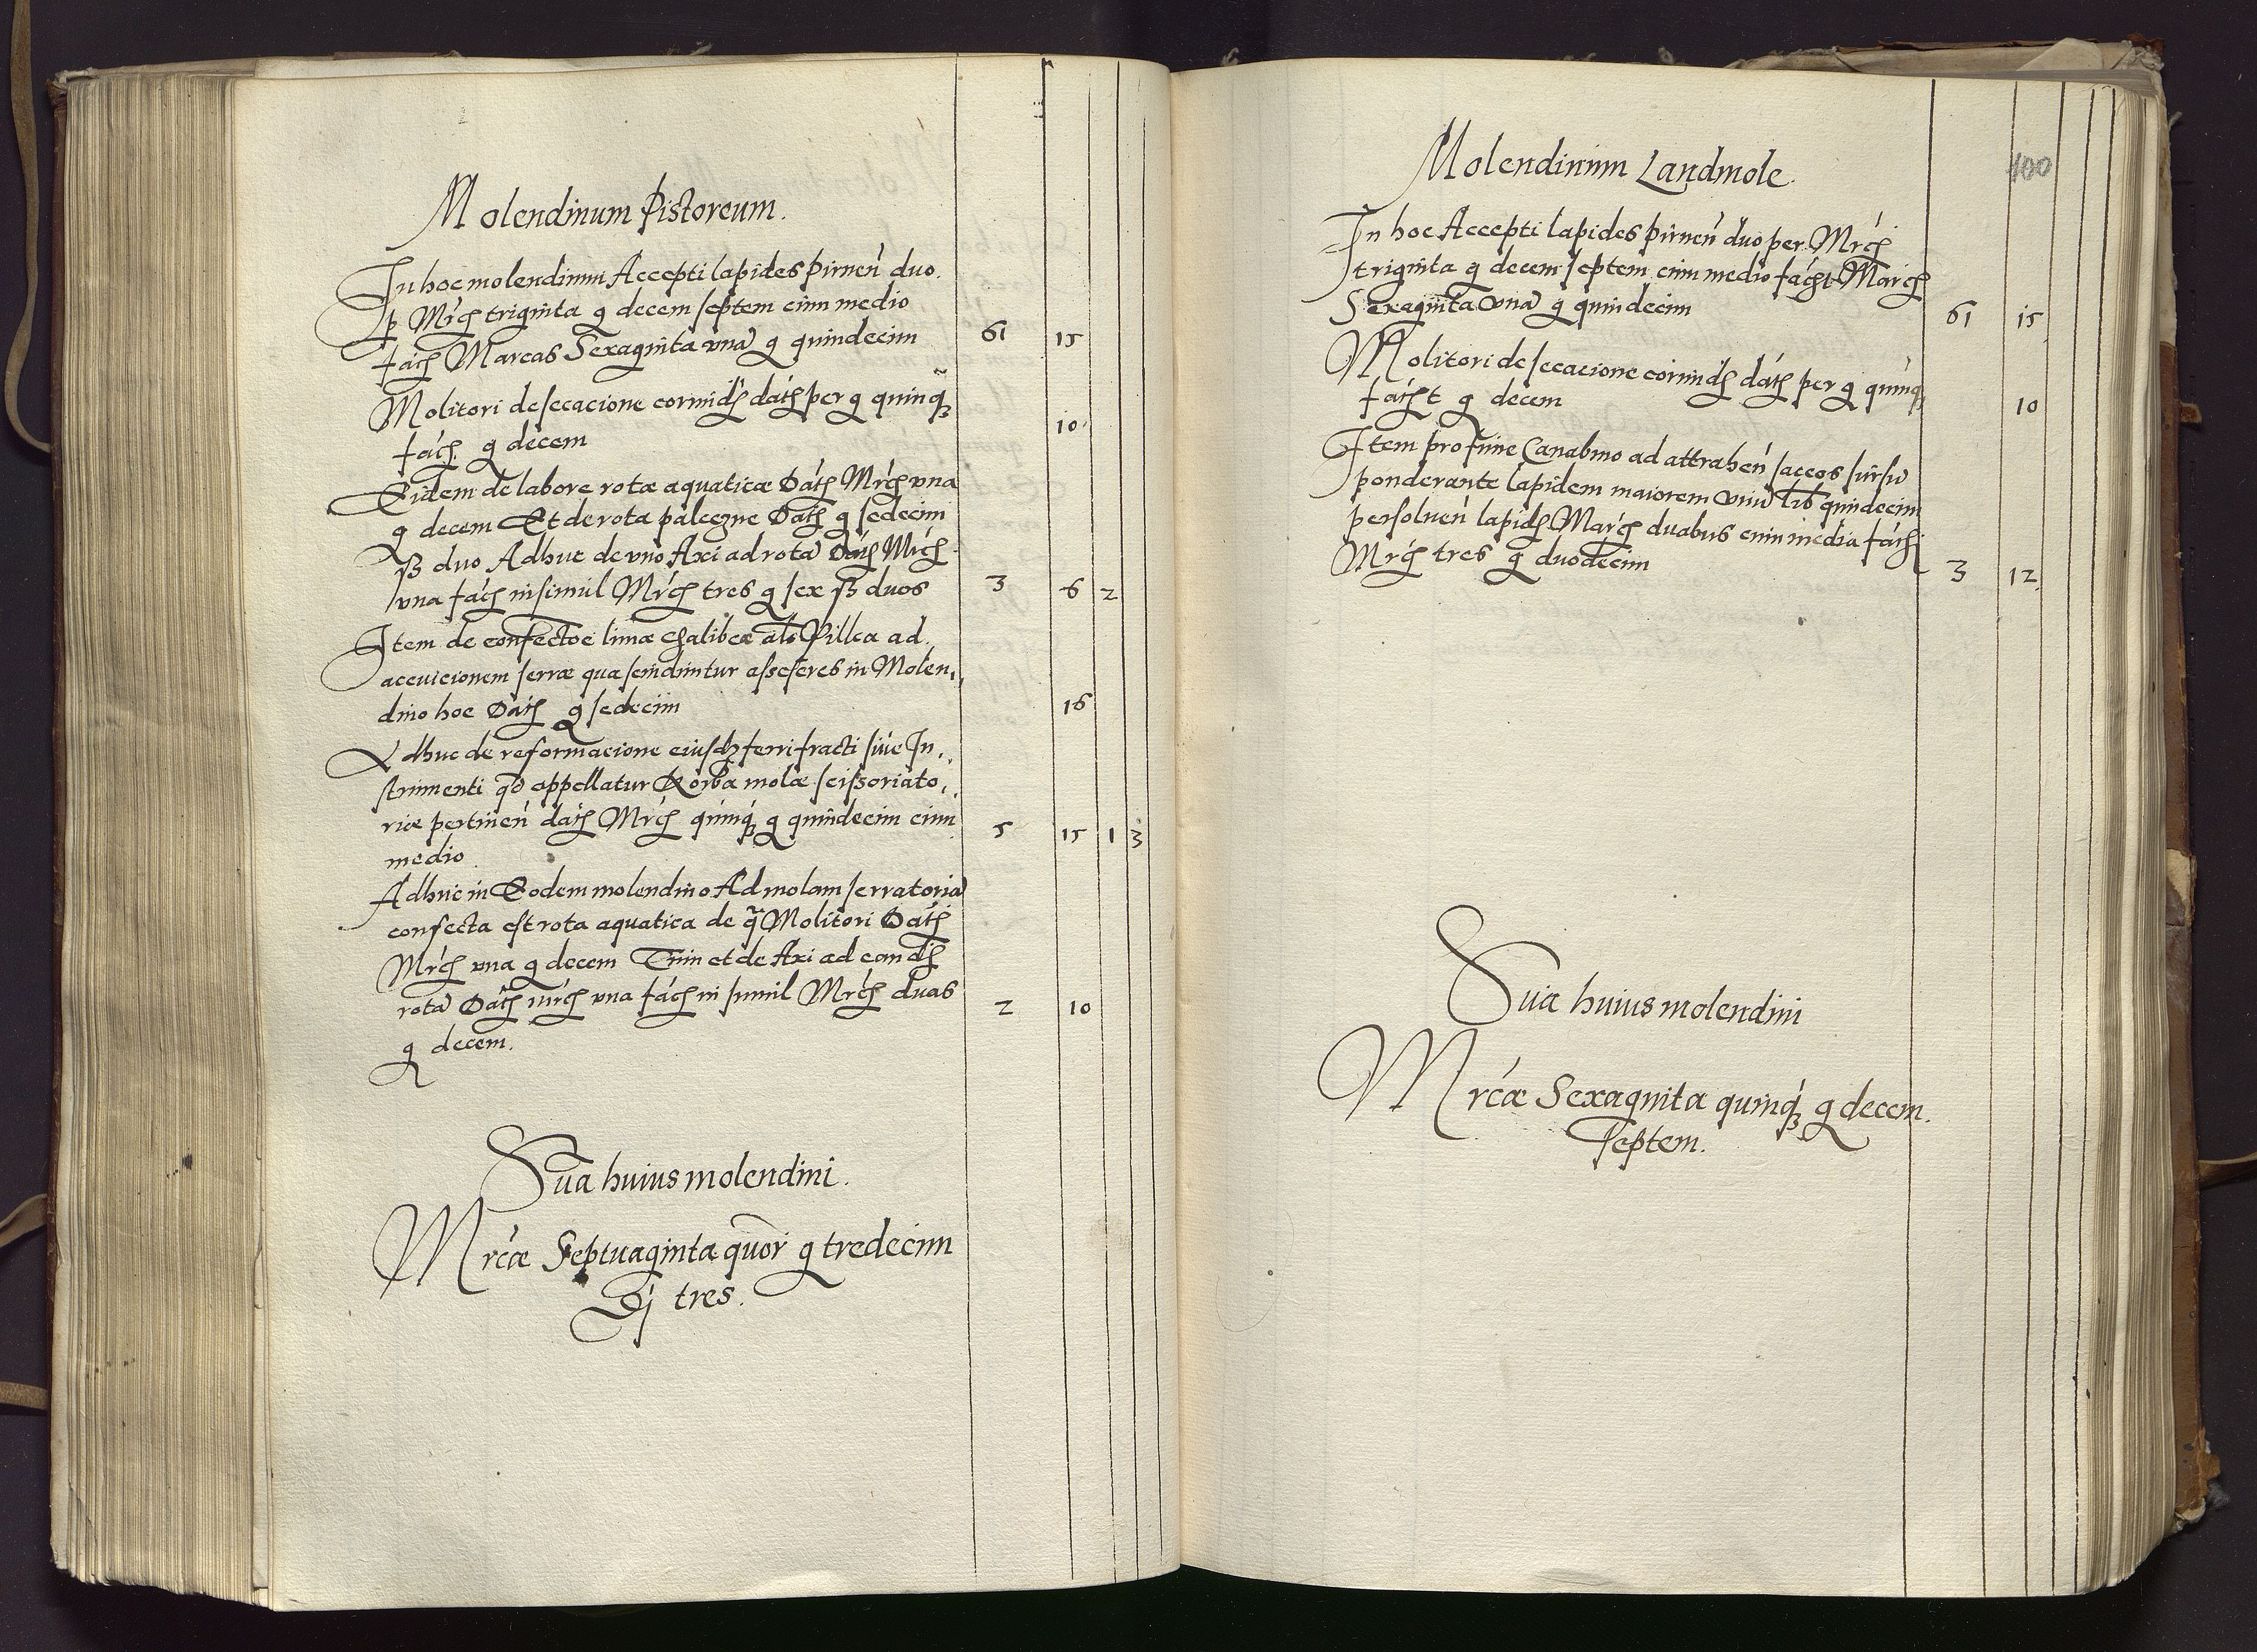 Molendinum Pistoreum.
In hoc molendinum Accepti lapides pirnen̄ duo.
ꝑ Mrcꝭ triginta g decem septem cum medio
facꝭ Marcas Sexaginta vnā g quindecim 61 15
Molitori de secacione eorundꝭ datꝭ per g quinqꝫ
facꝭ g decem 10
Eidem de labore rotæ aquaticæ Datꝭ Mrcꝭ vna
g decem Et de rota palcezne Datꝭ g sedecim
ß duo Adhuc de vno Axi ad rotā Datꝭ Mrcꝭ
vna facꝭ insimul Mrcꝭ tres g sex ß duos 3 6 2
Item de confectōe limæ chalibeæ als Pilka ad
acevicionem serræ qua scinduntur asseseres in Molen,,
dino hoc Datꝭ g sedecim 16
Adhuc de reformacione eiusdꝫ ferri fracti siue In,,
strumenti qd appellatur Korba molæ scissoriato,,
riæ pertinen̄ datꝭ Mrcꝭ quinqꝫ g quindecim cum
medio 5 15 1 3
Adhuc in Eodem molendino Ad molam serratoriā
confecta est rota aquatica de qa Molitori Datꝭ
Mrcꝭ vna g decem Tum et de Axi ad eandꝭ
rotā Datꝭ mrcꝭ vna facꝭ in simul Mrcꝭ duas 2 10
g decem.
Sūa huius molendini.
Mrcæ Septuaginta quor g tredecim
Dj tres.
100
Molendinum Landmole.
In hoc Accepti lapides pirnen̄ duo per Mrcꝭ
triginta g decem septem cum medio facꝭt Marcꝭ
Sexaginta vnā g quindecim 61 15
Molitori de secacione eorundꝭ datꝭ per g quinqꝫ
facꝭt g decem 10
Item pro fune Canabino ad attrahen̄ saccos sursū
ponderante lapidem maiorem vnū lib quindecim
persoluen̄ lapidꝭ Marcꝭ duabus cum media facꝭ
Mrcꝭ tres g duodecim 3 12
Sūa huius molendini
Mrcæ Sexaginta quinqꝫ g decem
septem.